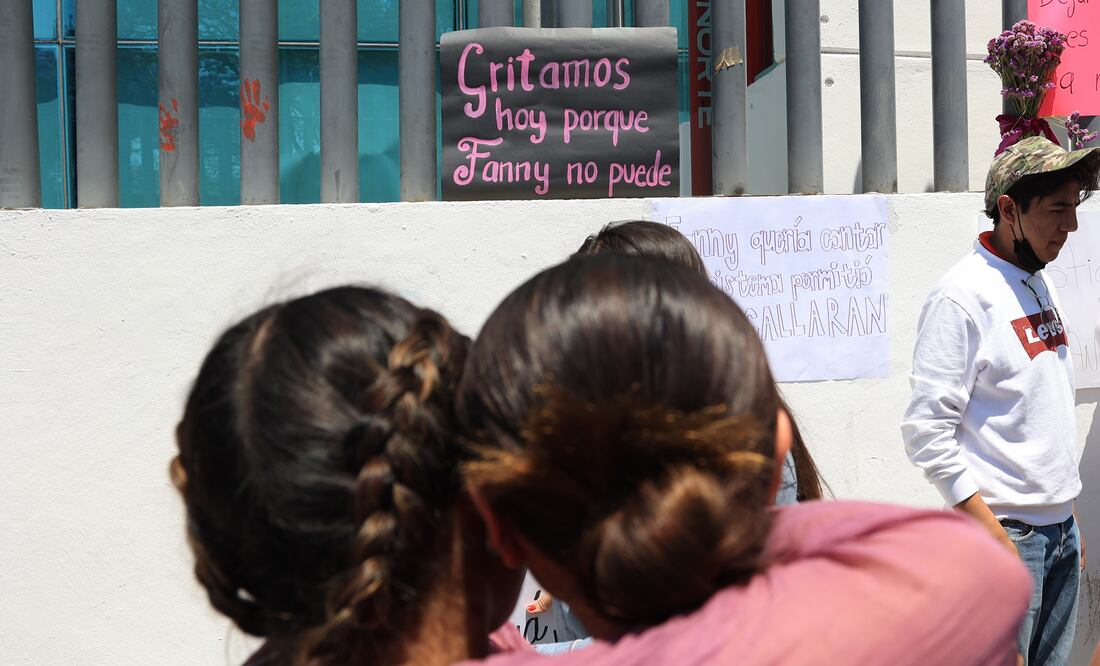 Gritamos
hoy porque
Fanny no puede
NORTE
Fanny quería cantar
sistema permitió
CALLARAN
Dejar
es
a
Levi's